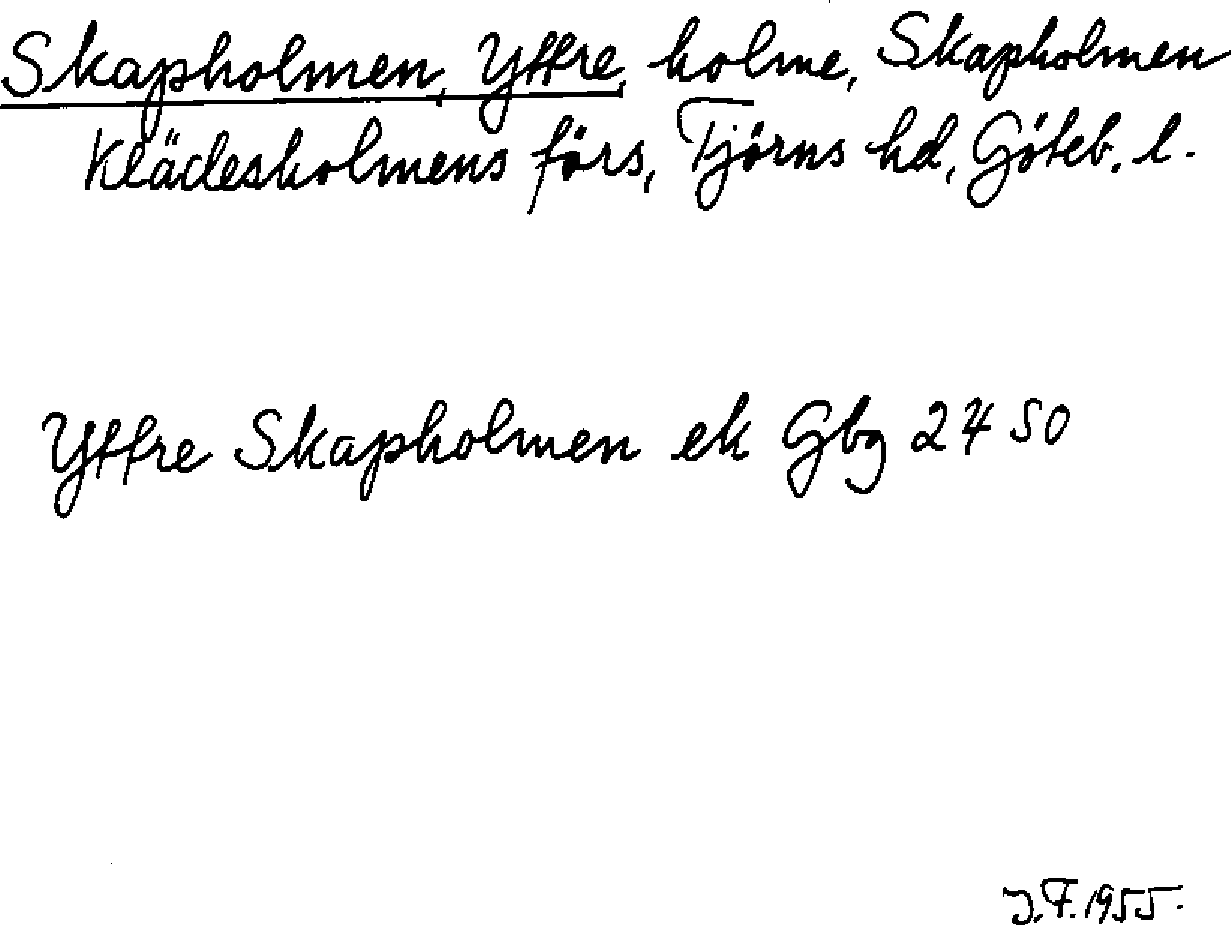 Skapholmen, Yttre, holme, Skapholmen
Klädesholmens förs, Tjörns hd, Göteb. l.
Yttre Skapholmen ek Gbg 2450
J.F. 1955.